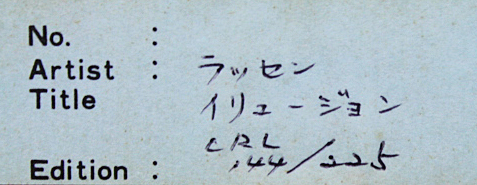 No. :
Artist : ラッセン
Title イリュージョン
CRL
Edition : 144/225